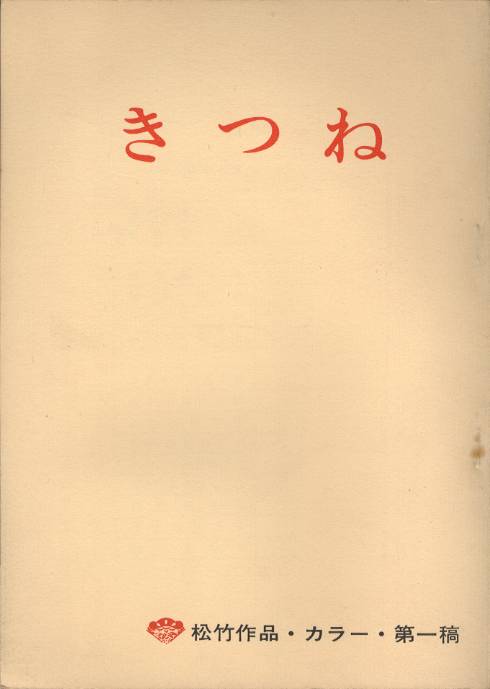 きつね
松竹作品・カラー・第一稿